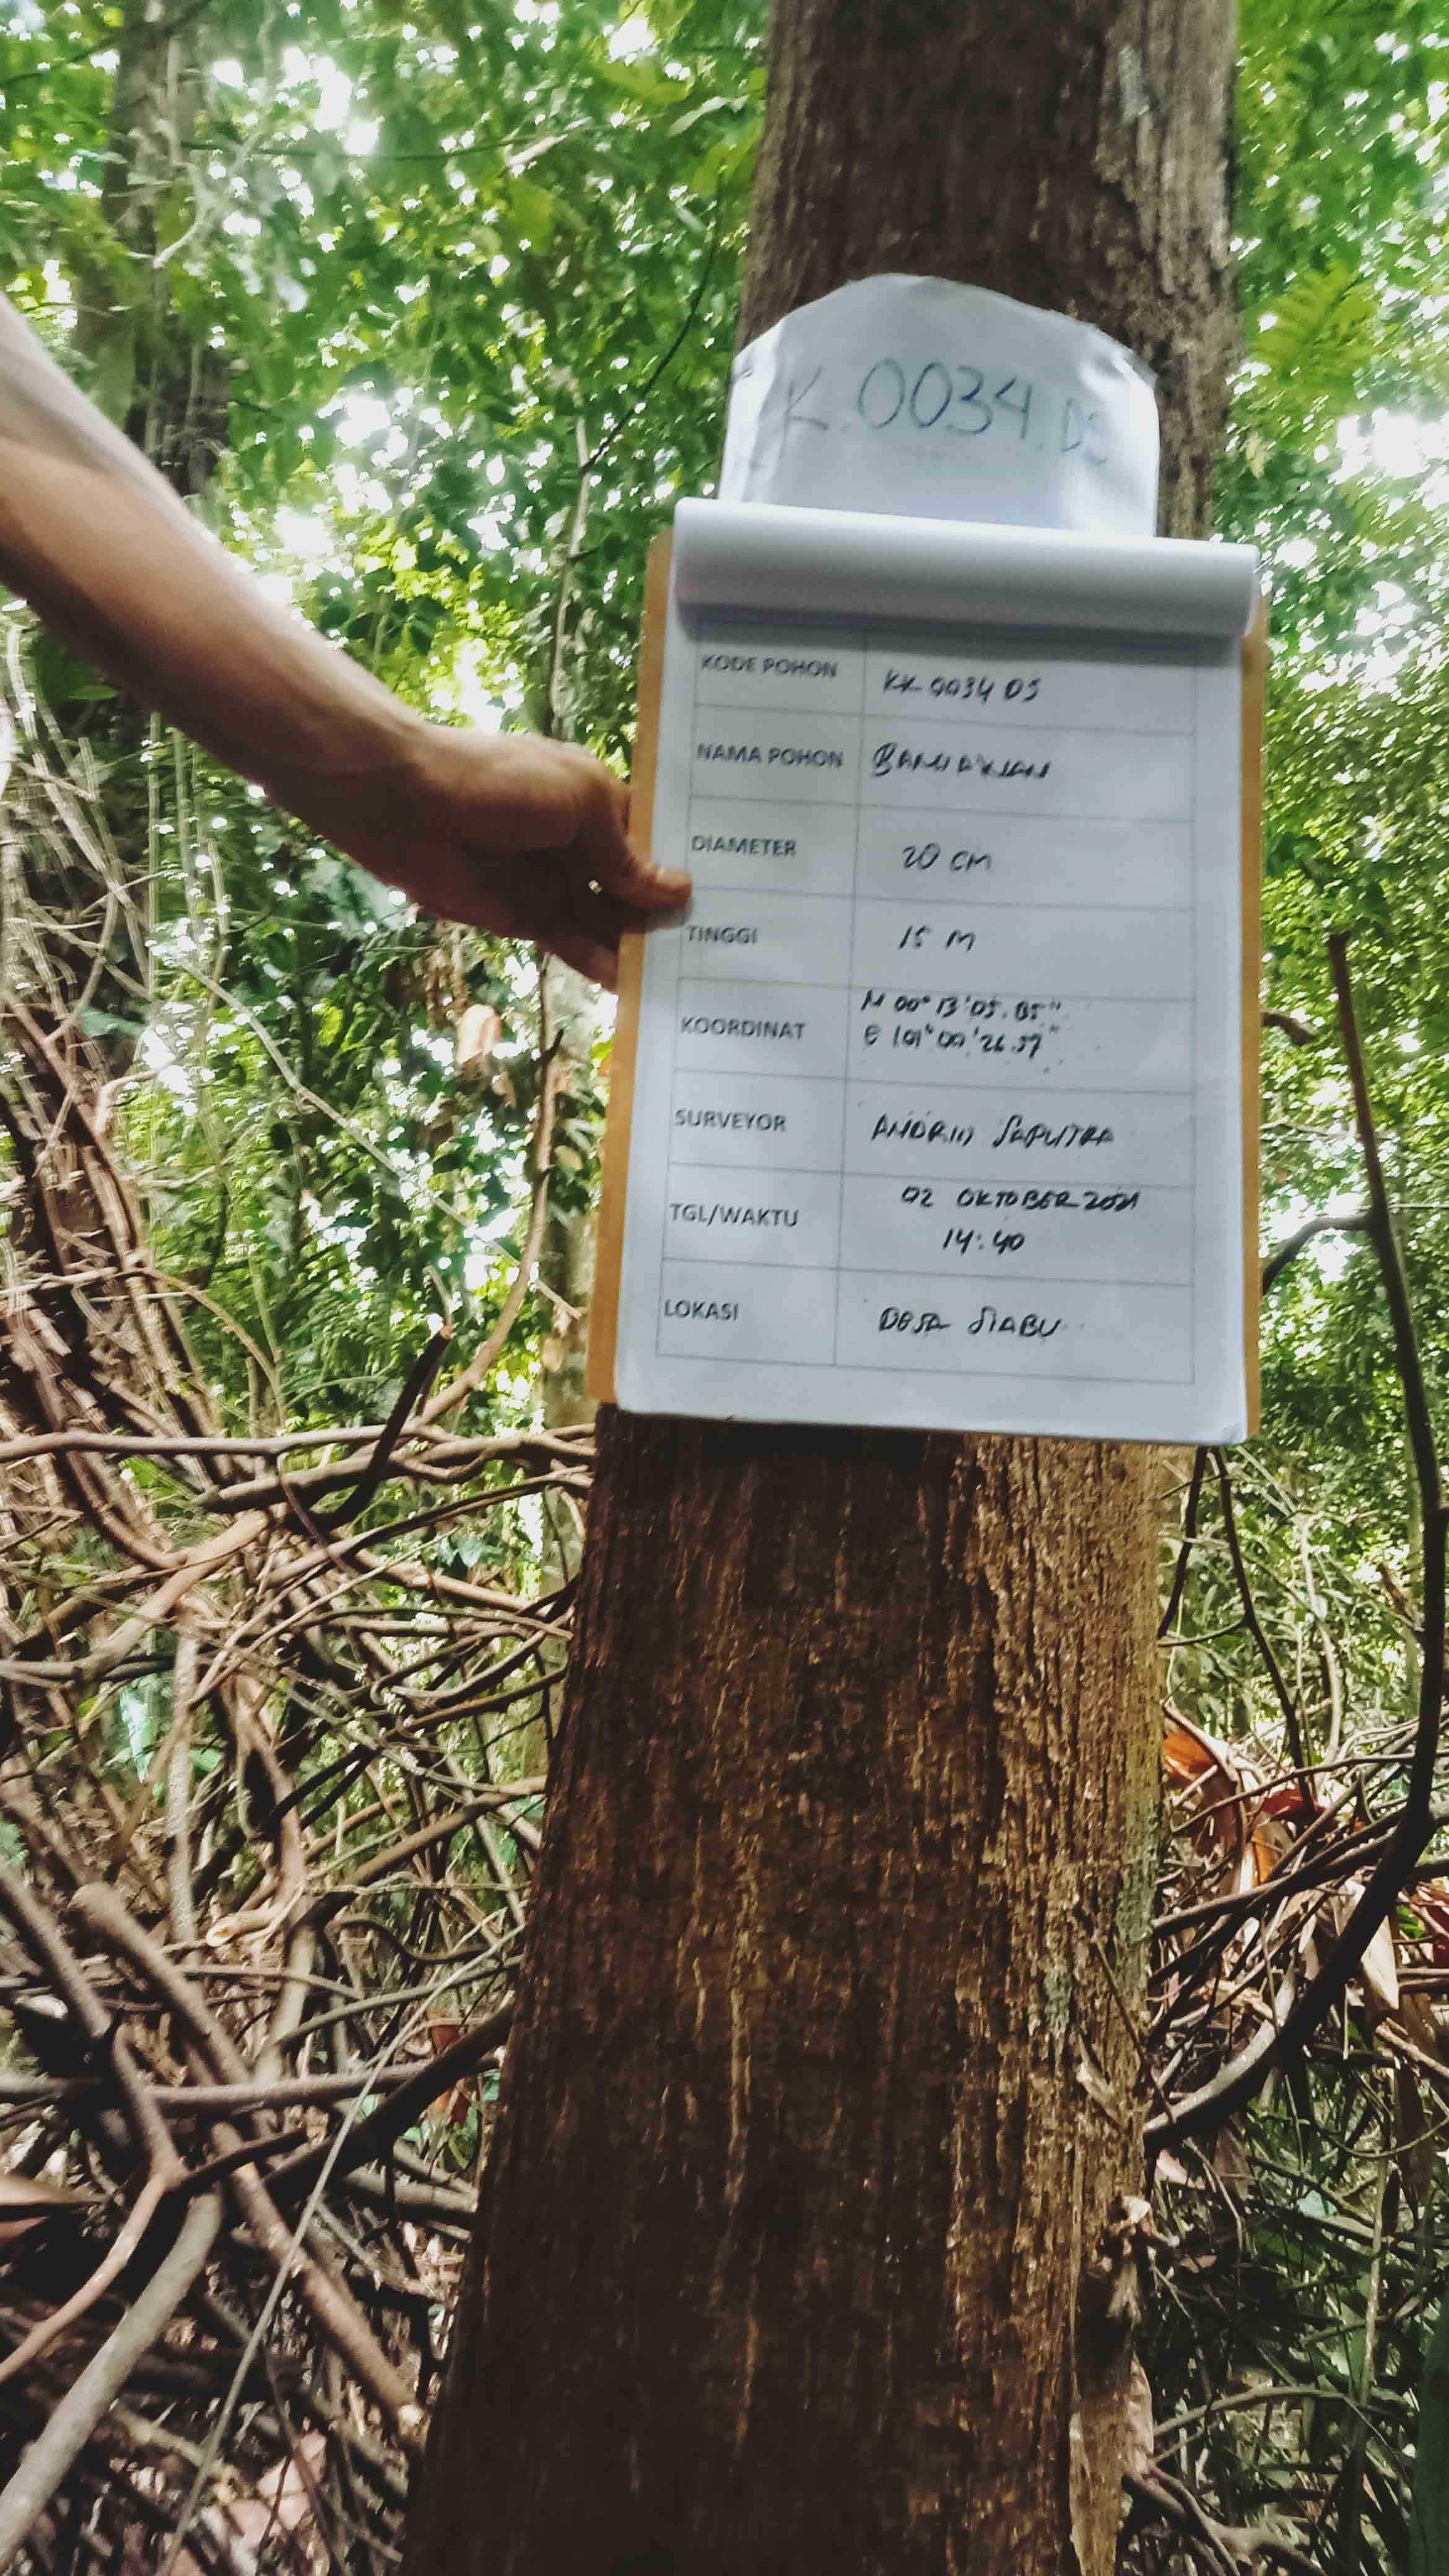 K.0034.DS
KODE POHON KK 0034 DS
NAMA POHON
DIAMETER 20 CM
TINGGI 15 M
KOORDINAT N 00° 13' 05.05"
E 101° 00' 26.37"
SURVEYOR ANDRIS SAPUTRA
TGL/WAKTU 02 OKTOBER 2021
14:40
LOKASI DESA SIABU